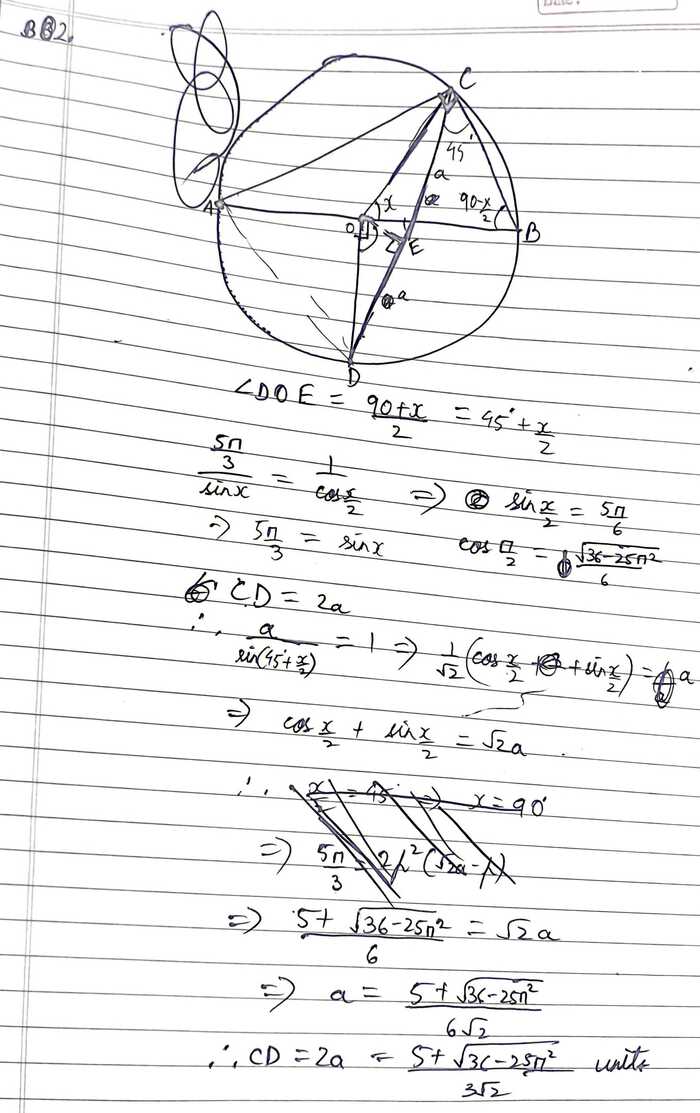 B2.
C
45°
a
A
x
90-x/2
O
E
B
a
D
∠DOE = (90+x)/2 = 45° + x/2
(5π/3)/sinx = 1/(cos x/2) ⇒ sin x/2 = 5π/6
⇒ 5π/3 = sinx cos π/2 = √(36-25π²)/6
CD = 2a
∴ a/sin(45°+x/2) = 1 ⇒ 1/√2 (cos x/2 + sin x/2) = a
⇒ cos x/2 + sin x/2 = √2a.
∴ x = 90°
⇒ 5π/3
⇒ (5+√(36-25π²))/6 = √2a
⇒ a = (5+√(36-25π²))/(6√2)
∴ CD = 2a = (5+√(36-25π²))/(3√2) units